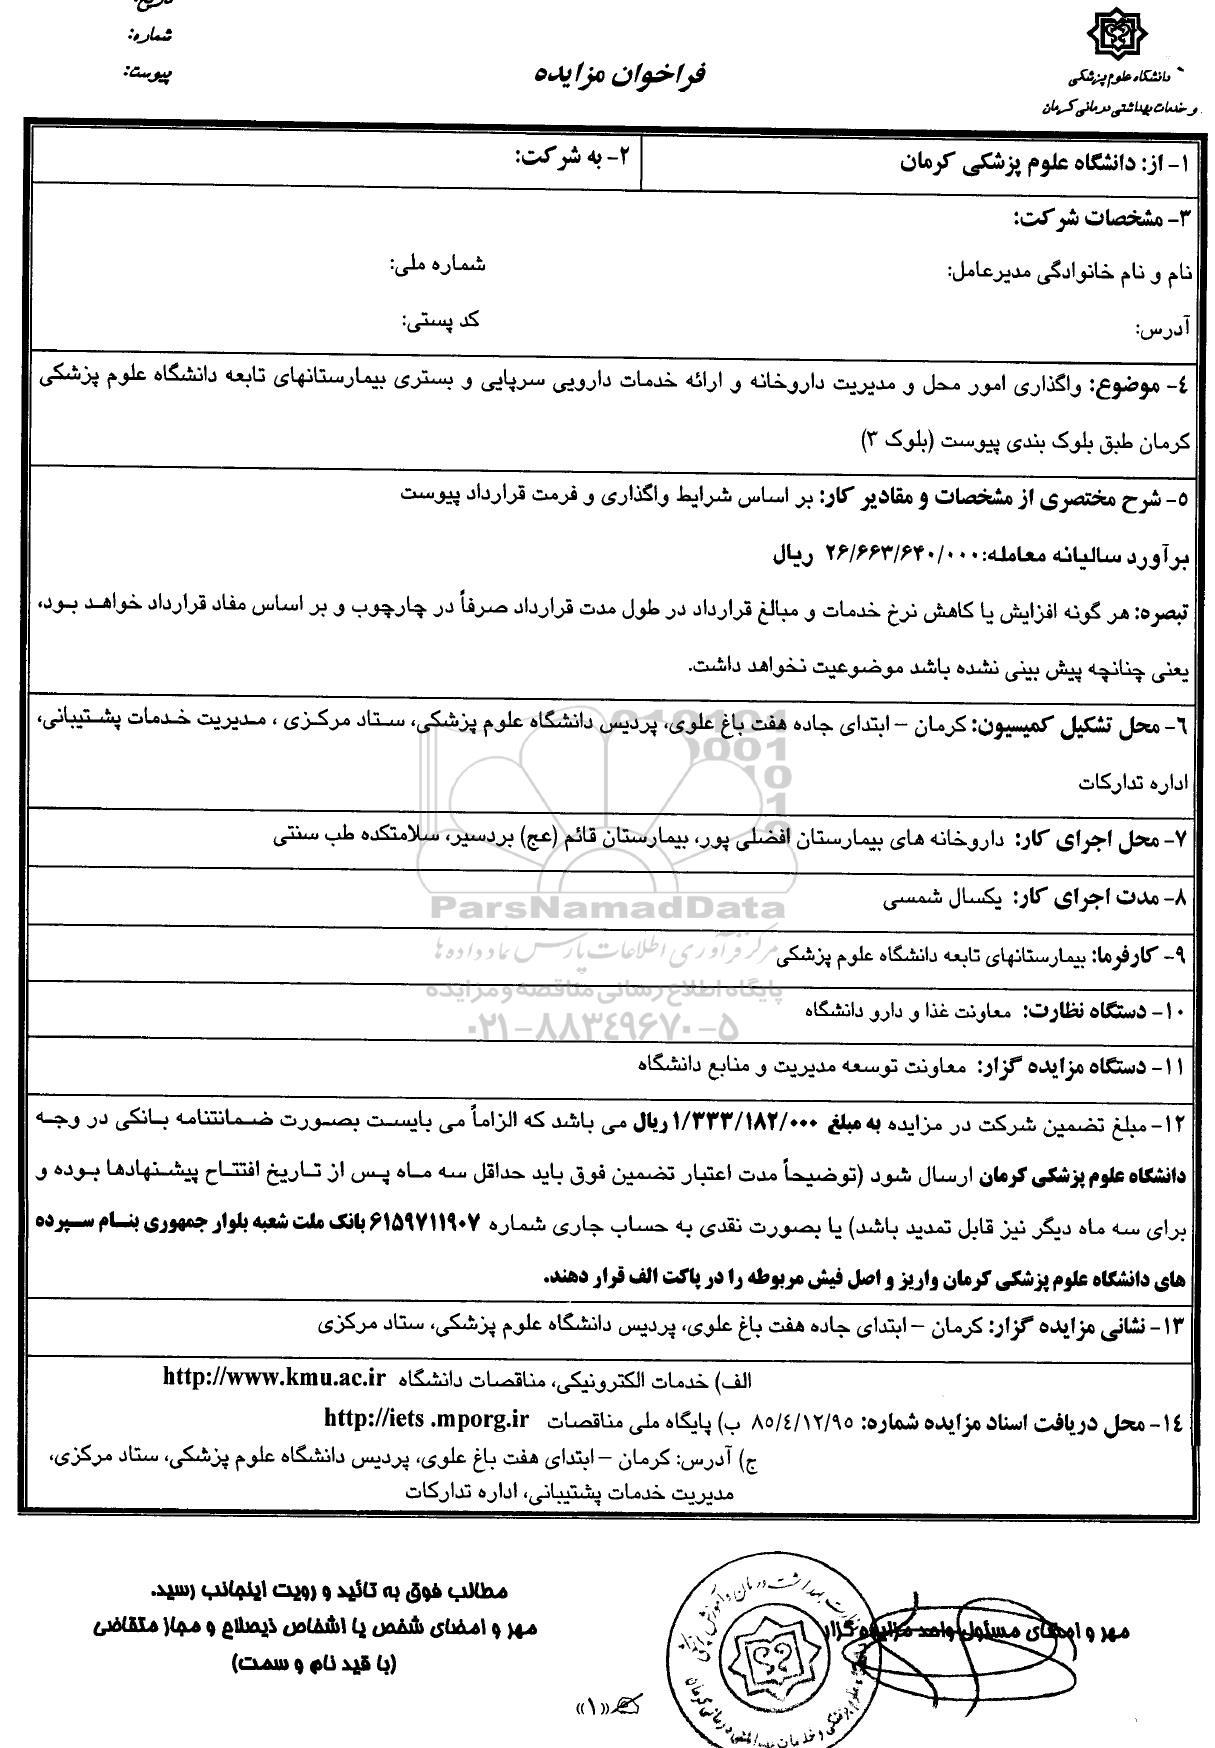 تاریخ:
شماره:
پیوست:
دانشگاه علوم پزشکی
و خدمات بهداشتی درمانی کرمان
فراخوان مزایده
۱- از: دانشگاه علوم پزشکی کرمان
۲- به شرکت:
۳- مشخصات شرکت:
نام و نام خانوادگی مدیرعامل: شماره ملی:
آدرس: کد پستی:
٤- موضوع: واگذاری امور محل و مدیریت داروخانه و ارائه خدمات دارویی سرپایی و بستری بیمارستانهای تابعه دانشگاه علوم پزشکی
کرمان طبق بلوک بندی پیوست (بلوک ۳)
٥- شرح مختصری از مشخصات و مقادیر کار: بر اساس شرایط واگذاری و فرمت قرارداد پیوست
برآورد سالیانه معامله: ۲۶/۶۶۳/۶۴۰/۰۰۰ ریال
تبصره: هر گونه افزایش یا کاهش نرخ خدمات و مبالغ قرارداد در طول مدت قرارداد صرفاً در چارچوب و بر اساس مفاد قرارداد خواهد بود،
یعنی چنانچه پیش بینی نشده باشد موضوعیت نخواهد داشت.
۶- محل تشکیل کمیسیون: کرمان – ابتدای جاده هفت باغ علوی، پردیس دانشگاه علوم پزشکی، ستاد مرکزی ، مدیریت خدمات پشتیبانی،
اداره تدارکات
۷- محل اجرای کار: داروخانه های بیمارستان افضلی پور، بیمارستان قائم (عج) بردسیر، سلامتکده طب سنتی
۸- مدت اجرای کار: یکسال شمسی
ParsNamadData
مرکز فرآوری اطلاعات پارس نماد داده ها
۹- کارفرما: بیمارستانهای تابعه دانشگاه علوم پزشکی
پایگاه اطلاع رسانی مناقصه و مزایده
۱۰- دستگاه نظارت: معاونت غذا و دارو دانشگاه
۰۲۱-۸۸۳۴۹۶۷۰-۵
۱۱- دستگاه مزایده گزار: معاونت توسعه مدیریت و منابع دانشگاه
۱۲- مبلغ تضمین شرکت در مزایده به مبلغ ۱/۳۳۳/۱۸۲/۰۰۰ ریال می باشد که الزاماً می بایست بصورت ضمانتنامه بانکی در وجه
دانشگاه علوم پزشکی کرمان ارسال شود (توضیحاً مدت اعتبار تضمین فوق باید حداقل سه ماه پس از تاریخ افتتاح پیشنهادها بوده و
برای سه ماه دیگر نیز قابل تمدید باشد) یا بصورت نقدی به حساب جاری شماره ۶۱۵۹۷۱۱۹۰۷ بانک ملت شعبه بلوار جمهوری بنام سپرده
های دانشگاه علوم پزشکی کرمان واریز و اصل فیش مربوطه را در پاکت الف قرار دهند.
۱۳- نشانی مزایده گزار: کرمان – ابتدای جاده هفت باغ علوی، پردیس دانشگاه علوم پزشکی، ستاد مرکزی
الف) خدمات الکترونیکی، مناقصات دانشگاه http://www.kmu.ac.ir
١٤- محل دریافت اسناد مزایده شماره: ٨٥/٤/١٢/٩٥ ب) پایگاه ملی مناقصات http://iets .mporg.ir
ج) آدرس: کرمان – ابتدای هفت باغ علوی، پردیس دانشگاه علوم پزشکی، ستاد مرکزی،
مدیریت خدمات پشتیبانی، اداره تدارکات
مهر و امضای مسئول واحد مزایده گزار
مطالب فوق به تائید و رویت اینجانب رسید.
مهر و امضای شخص یا اشخاص ذیصلاح و مجاز متقاضی
(با قید نام و سمت)
«۱»